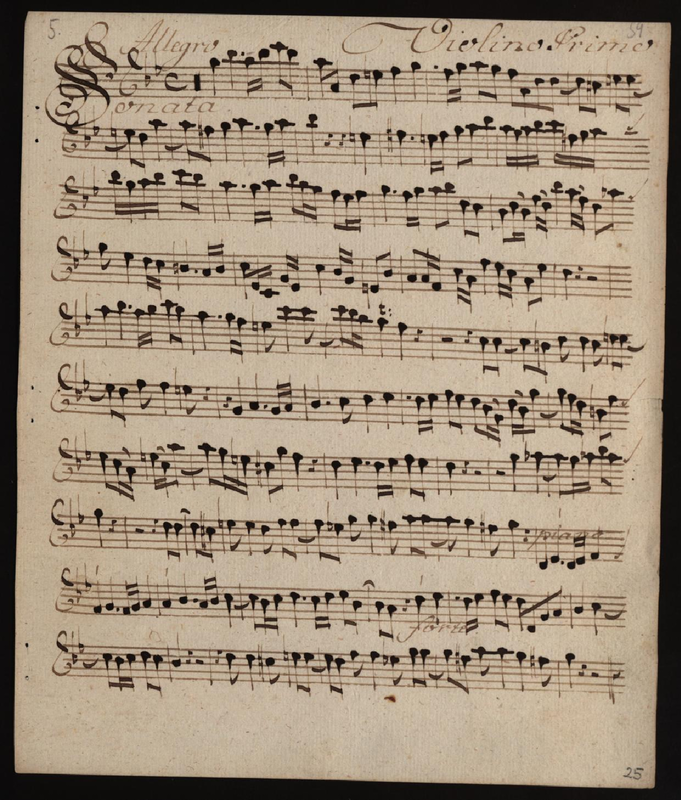 5.
Allegro
Violino Primo
54
Sonata
piano
forte
25